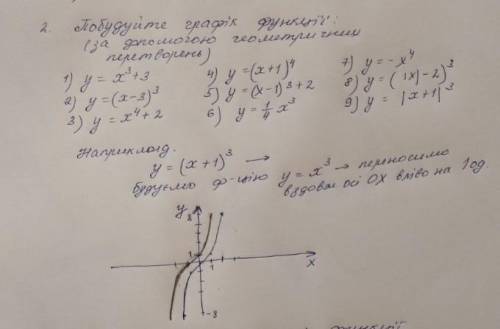 2. Побудуйте графік функції:
(за допомогою геометричних
перетворень)
1) y = x³+3
2) y = (x-3)³
3) y = x⁴+2
4) y = (x+1)⁴
5) y = (x-1)³+2
6) y = 1/4 x³
7) y = -x⁴
8) y = (|x|-2)³
9) y = |x+1|³
Наприклад.
y = (x+1)³ →
будуємо ф-цію y = x³ → переносимо
вздовж осі OX вліво на 1 од.
y
8
1
x
-8